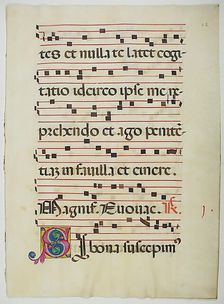 tes et nulla te latet cogi
tatio idcirco ipse me re
prehendo et ago penite
tiaz in favilla et cinere.
Magnif. Evovae.
Si bona suscepim⁹